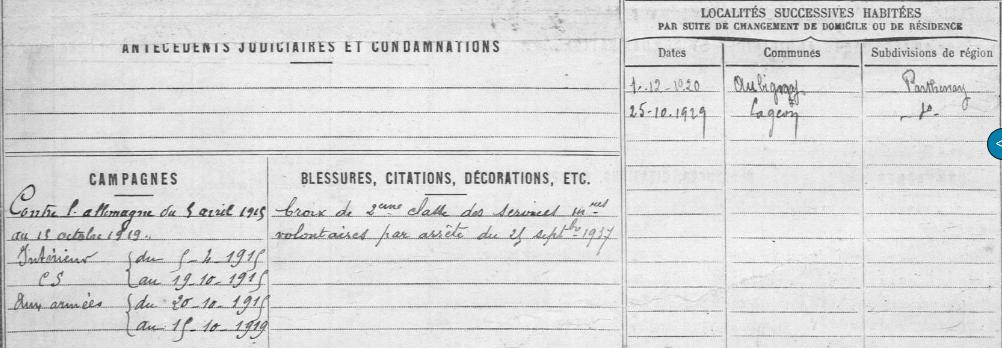 ANTÉCÉDENTS JUDICIAIRES ET CONDAMNATIONS
CAMPAGNES
Contre l'allemagne du 5 avril 1915
au 15 octobre 1919.
Intérieur { du 5-4-1915
CS { au 19-10-1915
aux armées { du 20-10-1915
{ au 15-10-1919
BLESSURES, CITATIONS, DÉCORATIONS, ETC.
Croix de 2eme classe des services mres
volontaires par arrêté du 25 septbre 1937
LOCALITÉS SUCCESSIVES HABITÉES
PAR SUITE DE CHANGEMENT DE DOMICILE OU DE RÉSIDENCE
Dates Communes Subdivisions de région
1-12-1920 Aubigny Parthenay
25-10-1929 Lageon do